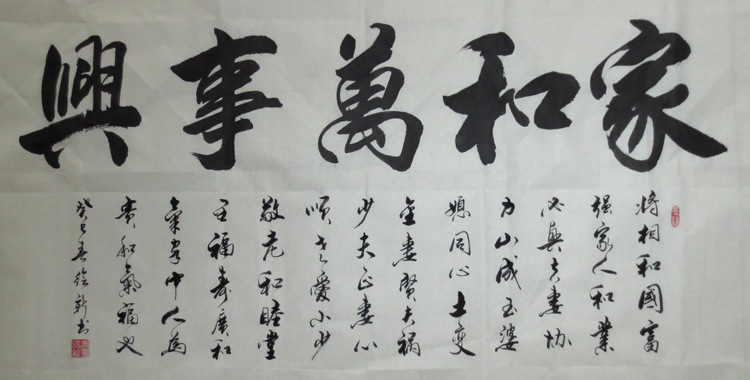 家和萬事興
將相和國富
強家人和業
必興夫妻協
力山成玉婆
媳同心土變
金妻賢夫禍
少夫正妻心
順老愛小少
敬老和睦堂
五福壽康和
氣家中人為
貴和氣福也
癸巳春 新書